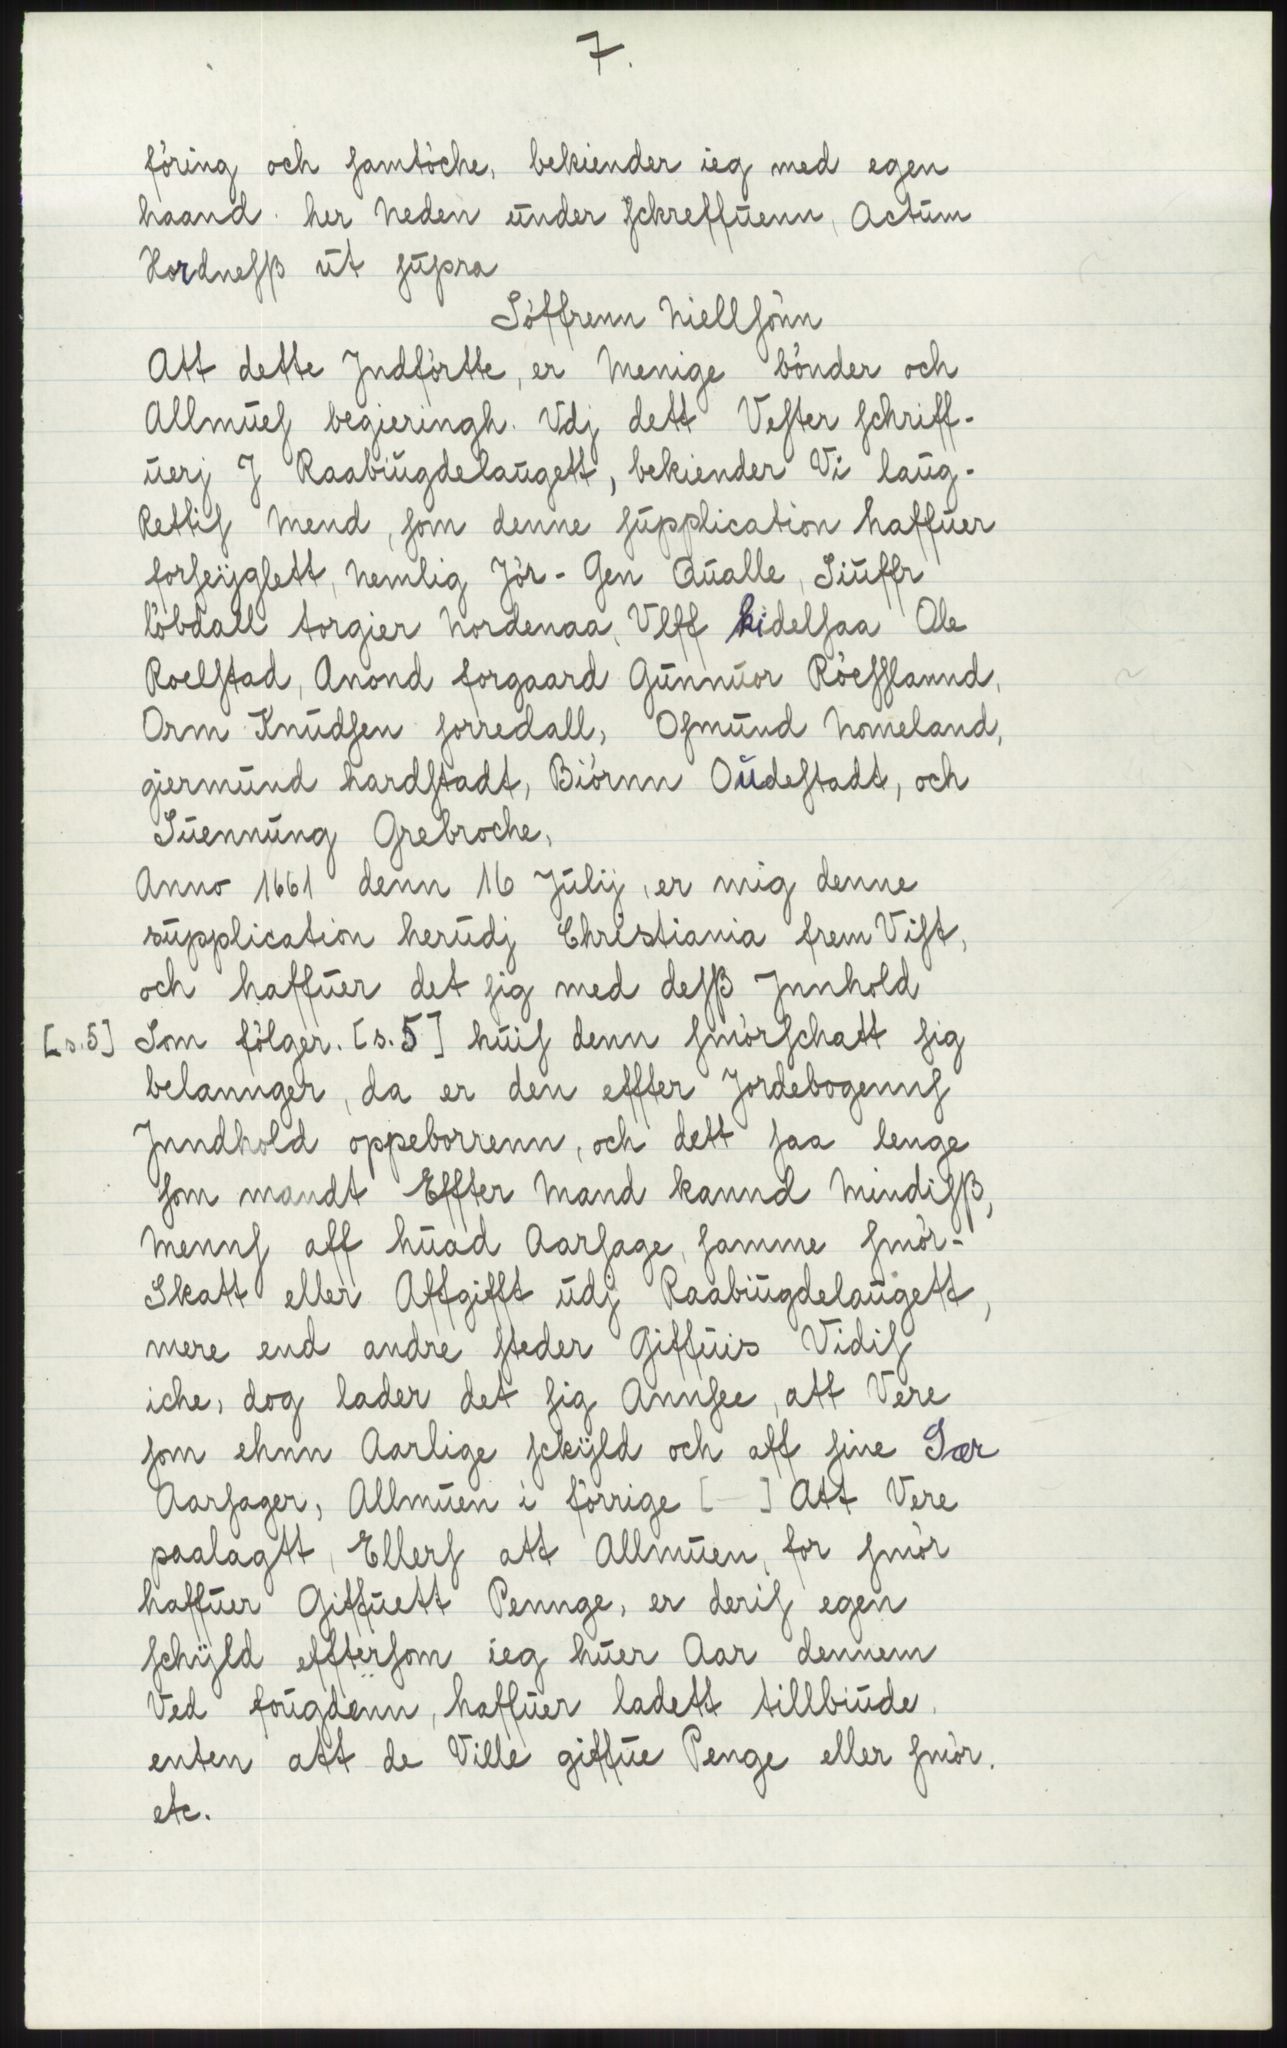 7.
föring och samtöche, bekiender ieg med egen
haand. her Neden under Schreffuenn, Actum
Hordnesß ut supra
Söffrenn Niellsönn
Att dette Jndförtte, er Menige bönder och
Allmues begieringh. Vdj dett Vester schriff-
uerj J Raabiugdelaugett, bekiender Vi laug-
Rettis Mend, som denne supplication haffuer
forseÿglett, Nemlig Jör-Gen Qualle, Siuffr
löbdall torgier Nordenaa, Vlff kidelsaa Ole
Roelstad, Anond forgaard Gunnuor Röessland,
Orm Knudsen sorredall, Osmund Nomeland,
giermund hardstadt, Biörnn Oudestadt, och
Suennung Grebroche,
Anno 1661 denn 16 Julij, er mig denne
supplication herudj Christiania frem Vist,
och haffuer det sig med desß Jnnhold
[s.5] Som fölger. [s.5] huis denn smörschatt sig
belannger, da er den effter Jordebogenns
Jnndhold oppeborrenn, och dett saa lenge
som mandt Effter Mand kannd Mindisß,
Menns aff huad Aarsage, samme smör-
Skatt eller Affgifft udj Raabiugdelaugett,
mere end andre steder Giffuis Vidis
iche, dog lader det sig Annsee, att Vere
som ehnn Aarlige schÿld och aff sine Sær
Aarsager, Allmuen i förrige [ - ] Att Vere
paalagtt, Ellers att Allmuen, for smör
haffuer Giffuett Pennge, er deris egen
schÿld efftersom ieg huer Aar dennem
Ved fougdenn, haffuer ladett tillbiude,
enten att de Ville giffue Penge eller smör.
etc.